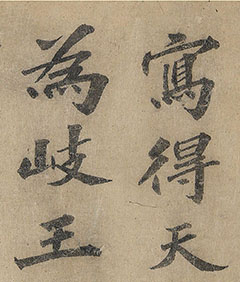 寫得天
為岐王